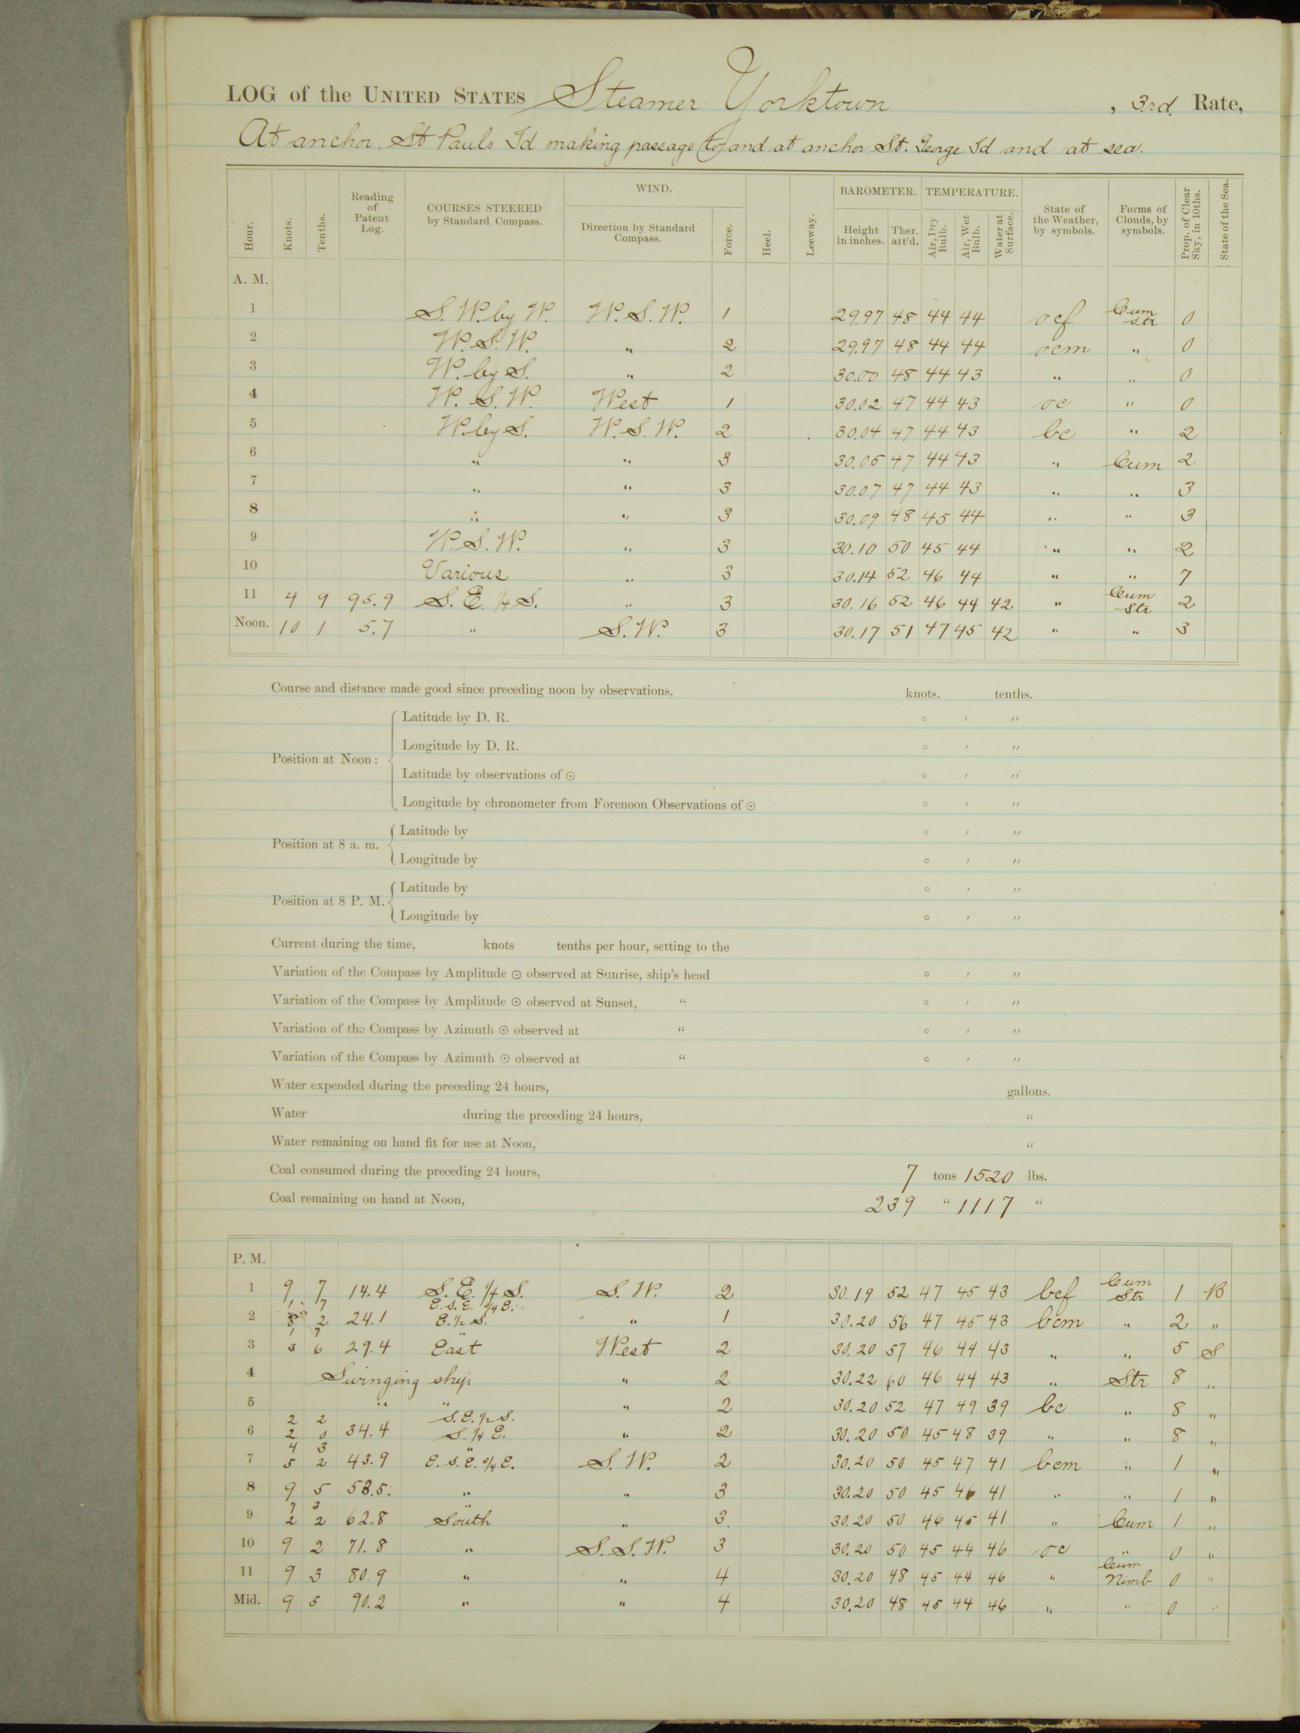 LOG of the UNITED STATES Steamer Yorktown, 3rd. Rate,
At anchor, St Pauls Id making passage to and at anchor St. George Id and at sea.
Hour. Knots. Tenths. Reading of Patent Log. COURSES STEERED by Standard Compass. WIND. Direction by Standard Compass. Force. Heel. Leeway. BAROMETER. Height in inches. Ther. att'd. TEMPERATURE. Air, Dry Bulb. Air, Wet Bulb. Water at Surface. State of the Weather, by symbols. Forms of Clouds, by symbols. Prop. of Clear Sky, in 10ths. State of the Sea.
A. M.
1 S. W. by W. W. S. W. 1 29.97 48 44 44 ocf Cum Str 0
2 W. S. W. " 2 29.97 48 44 44 ocm " 0
3 W. by S. " 2 30.00 48 44 43 " " 0
4 W. S. W. West 1 30.02 47 44 43 oc " 0
5 W. by S. W. S. W. 2 30.04 47 44 43 bc " 2
6 " " 3 30.05 47 44 43 " Cum 2
7 " " 3 30.07 47 44 43 " " 3
8 " " 3 30.09 48 45 44 " " 3
9 W. S. W. " 3 30.10 50 45 44 " " 2
10 Various " 3 30.14 52 46 44 " " 7
11 4 9 95.9 S. E. 1/4 S. " 3 30.16 52 46 44 42 " Cum Str 2
Noon. 10 1 5.7 " S. W. 3 30.17 51 47 45 42 " " 3
Course and distance made good since preceding noon by observations, knots. tenths.
Position at Noon: Latitude by D. R. ° ′ ″
Longitude by D. R. ° ′ ″
Latitude by observations of ☉ ° ′ ″
Longitude by chronometer from Forenoon Observations of ☉ ° ′ ″
Position at 8 a. m. Latitude by ° ′ ″
Longitude by ° ′ ″
Position at 8 P. M. Latitude by ° ′ ″
Longitude by ° ′ ″
Current during the time, knots tenths per hour, setting to the
Variation of the Compass by Amplitude ☉ observed at Sunrise, ship's head ° ′ ″
Variation of the Compass by Amplitude ☉ observed at Sunset, " ° ′ ″
Variation of the Compass by Azimuth ☉ observed at " ° ′ ″
Variation of the Compass by Azimuth ☉ observed at " ° ′ ″
Water expended during the preceding 24 hours, gallons.
Water during the preceding 24 hours, "
Water remaining on hand fit for use at Noon, "
Coal consumed during the preceding 24 hours, 7 tons 1520 lbs.
Coal remaining on hand at Noon, 239 " 1117 "
P. M.
1 9 7 14.4 S. E. 1/4 S. S. W. 2 30.19 52 47 45 43 bcf Cum Str 1 B
1 7 E. S. E. 3/4 E.
2 8 2 24.1 E. 1/2 S. " 1 30.20 56 47 45 43 bcm " 2 "
1 7 "
3 3 6 29.4 East West 2 30.20 57 46 44 43 " " 5 S
4 Swinging ship " 2 30.22 60 46 44 43 " Str 8 "
5 " " " 2 30.20 52 47 49 39 bc " 8 "
2 2 S. E. 1/2 S.
6 2 0 34.4 S. 1/4 E. " 2 30.20 50 45 48 39 " " 8 "
4 3 "
7 5 2 43.9 E. S. E. 3/4 E. S. W. 2 30.20 50 45 47 41 bcm " 1 "
8 9 5 53.5. " " 3 30.20 50 45 46 41 " " 1 "
7 3 "
9 2 2 62.8 South " 3. 30.20 50 46 45 41 " Cum 1 "
10 9 2 71.8 " S. S. W. 3 30.20 50 45 44 46 oc " 0 "
11 9 3 80.9 " " 4 30.20 48 45 44 46 " Cum Nimb 0 "
Mid. 9 5 90.2 " " 4 30.20 48 45 44 46 " " 0 "